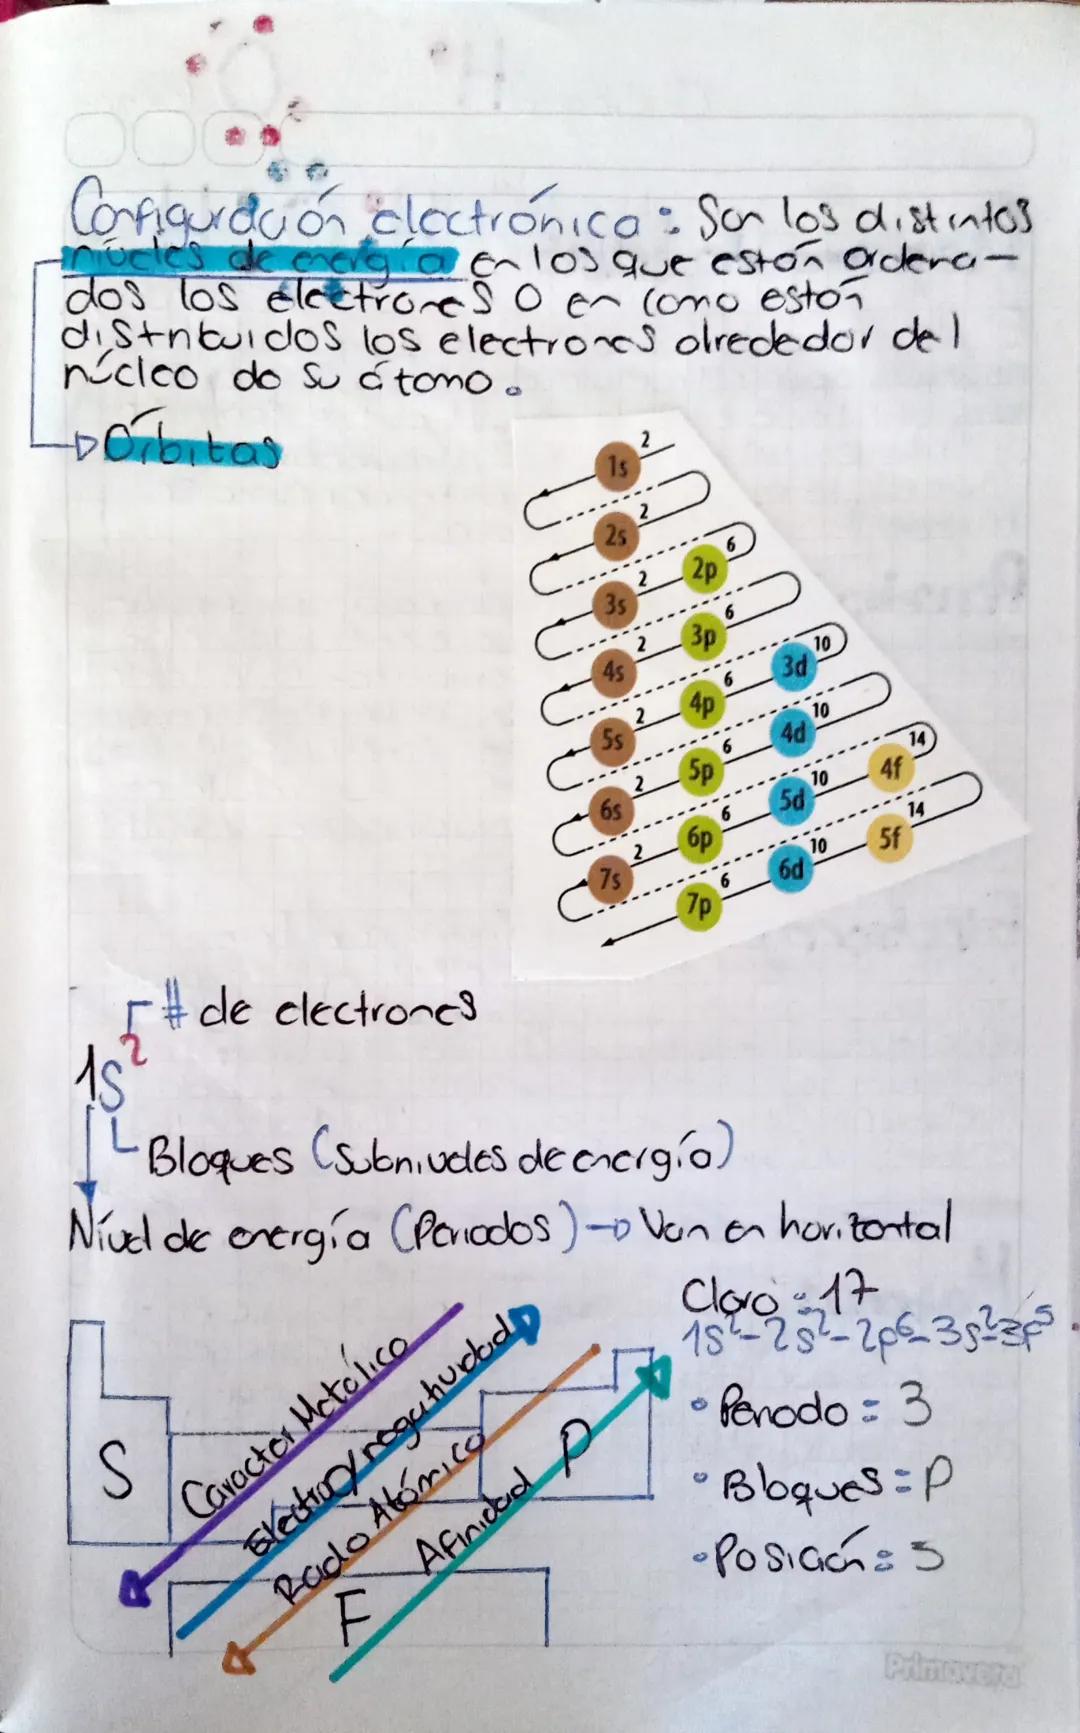 Configuración electrónica: Son los distintos
niveles de energía en los que están ordena-
dos los electrones o en como están
distribuidos los electrones alrededor del
núcleo de su átomo.
Órbitas
1s 2
2s 2
2p 6
3s 2
3p 6
3d 10
4s 2
4p 6
4d 10
4f 14
5s 2
5p 6
5d 10
5f 14
6s 2
6p 6
6d 10
7s 2
7p 6
# de electrones
1s²
Bloques (Subniveles de energía)
Nível de energía (Periodos) → Van en horizontal
Cloro: 17
1s²-2s²-2p⁶-3s²-3p⁵
• Periodo = 3
• Bloques = P
• Posición = 5
S
Caracter Metálico
Electronegatividad
Radio Atómico
Afinidad
P
F
Primavera